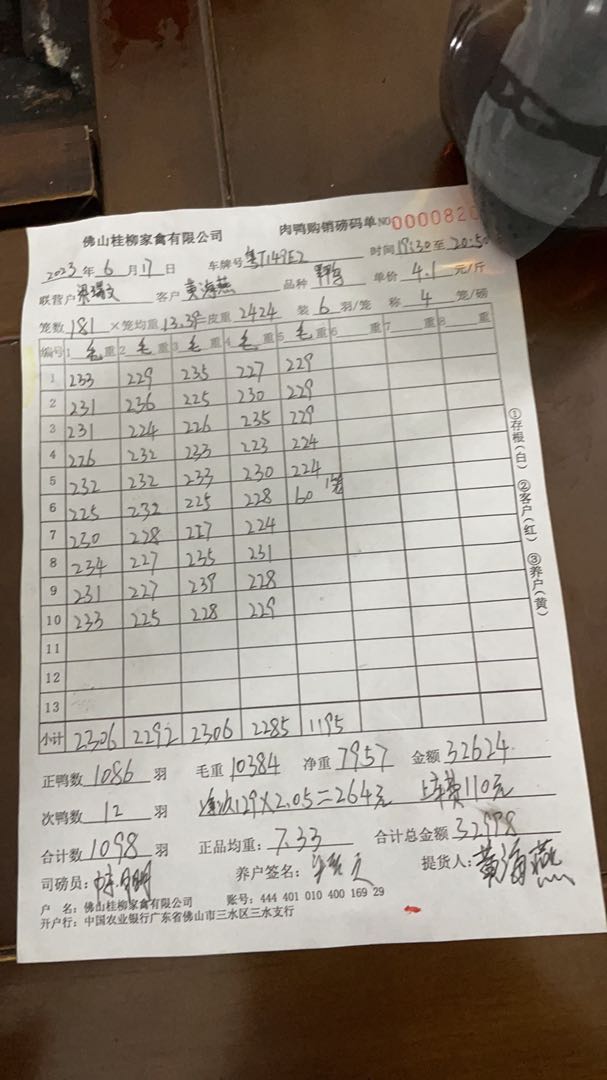 佛山桂柳家禽有限公司 肉鸭购销磅码单 NO 0000820
2023 年 6 月 17 日 车牌号 粤T149E2 时间 19:30 至 20:50
联营户 客户 黄海燕 品种 单价 4.1 元/斤
笼数 181 × 笼均重 13.39 = 皮重 2424 装 6 羽/笼 称 4 笼/磅
编号 1 毛 重 2 毛 重 3 毛 重 4 毛 重 5 毛 重 6 重 7 重 8 重
1 233 229 235 227 229
2 231 236 225 230 229
3 231 224 226 235 229
4 226 232 233 223 224
5 232 232 233 230 224
6 225 232 225 228 60 1笼
7 230 228 227 224
8 234 227 235 231
9 231 227 239 228
10 233 225 228 229
11
12
13
小计 2306 2292 2306 2285 1195
正鸭数 1086 羽 毛重 10384 净重 7957 金额 32624
次鸭数 12 羽 129×2.05=264元 110元
合计数 1098 羽 正品均重: 7.33 合计总金额 32998
司磅员: 养户签名: 提货人: 黄海燕
户 名: 佛山桂柳家禽有限公司 账号: 444 401 010 400 169 29
开户行: 中国农业银行广东省佛山市三水区三水支行
①存根(白) ②客户(红) ③养户(黄)